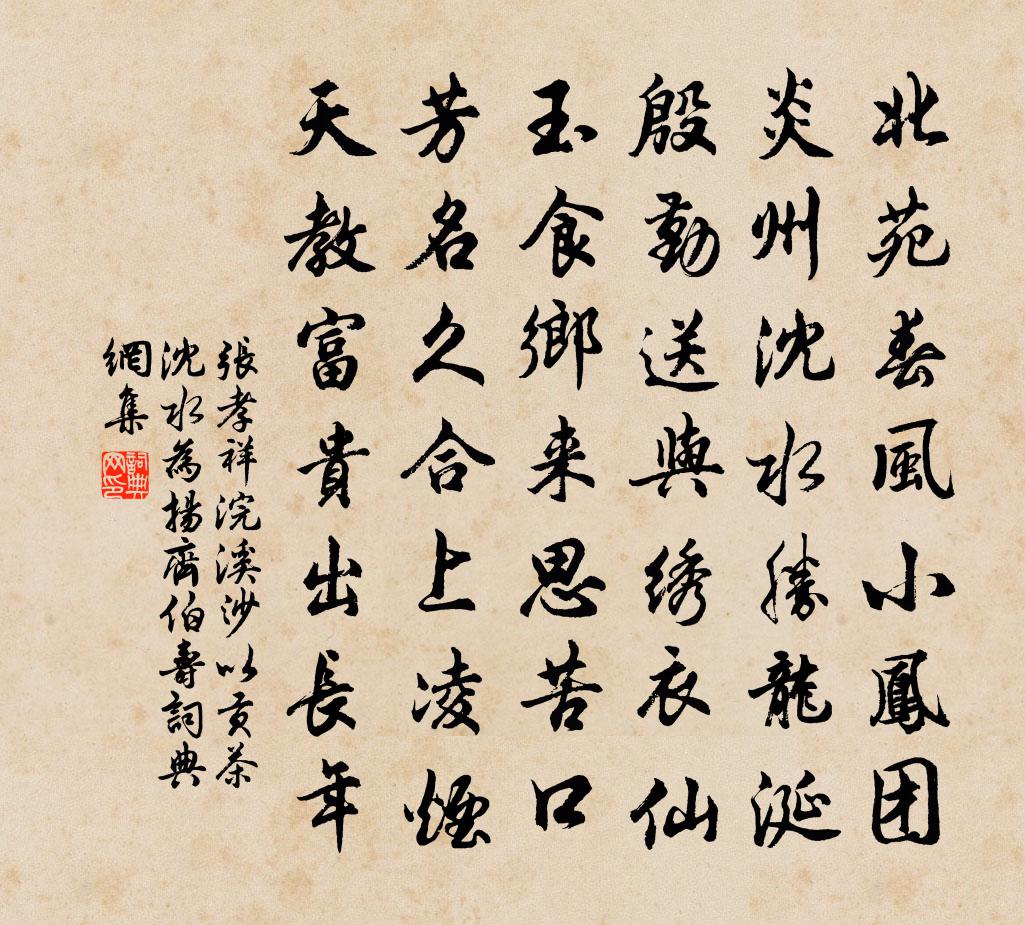 北苑春風小鳳团
炎州沈水勝龍涎
殷勤送與绣衣仙
玉食鄉来思苦口
芳名久合上凌煙
天教富貴出長年
張孝祥浣溪沙以貢茶
沈水為揚齊伯壽詞典
網集
詞典网印